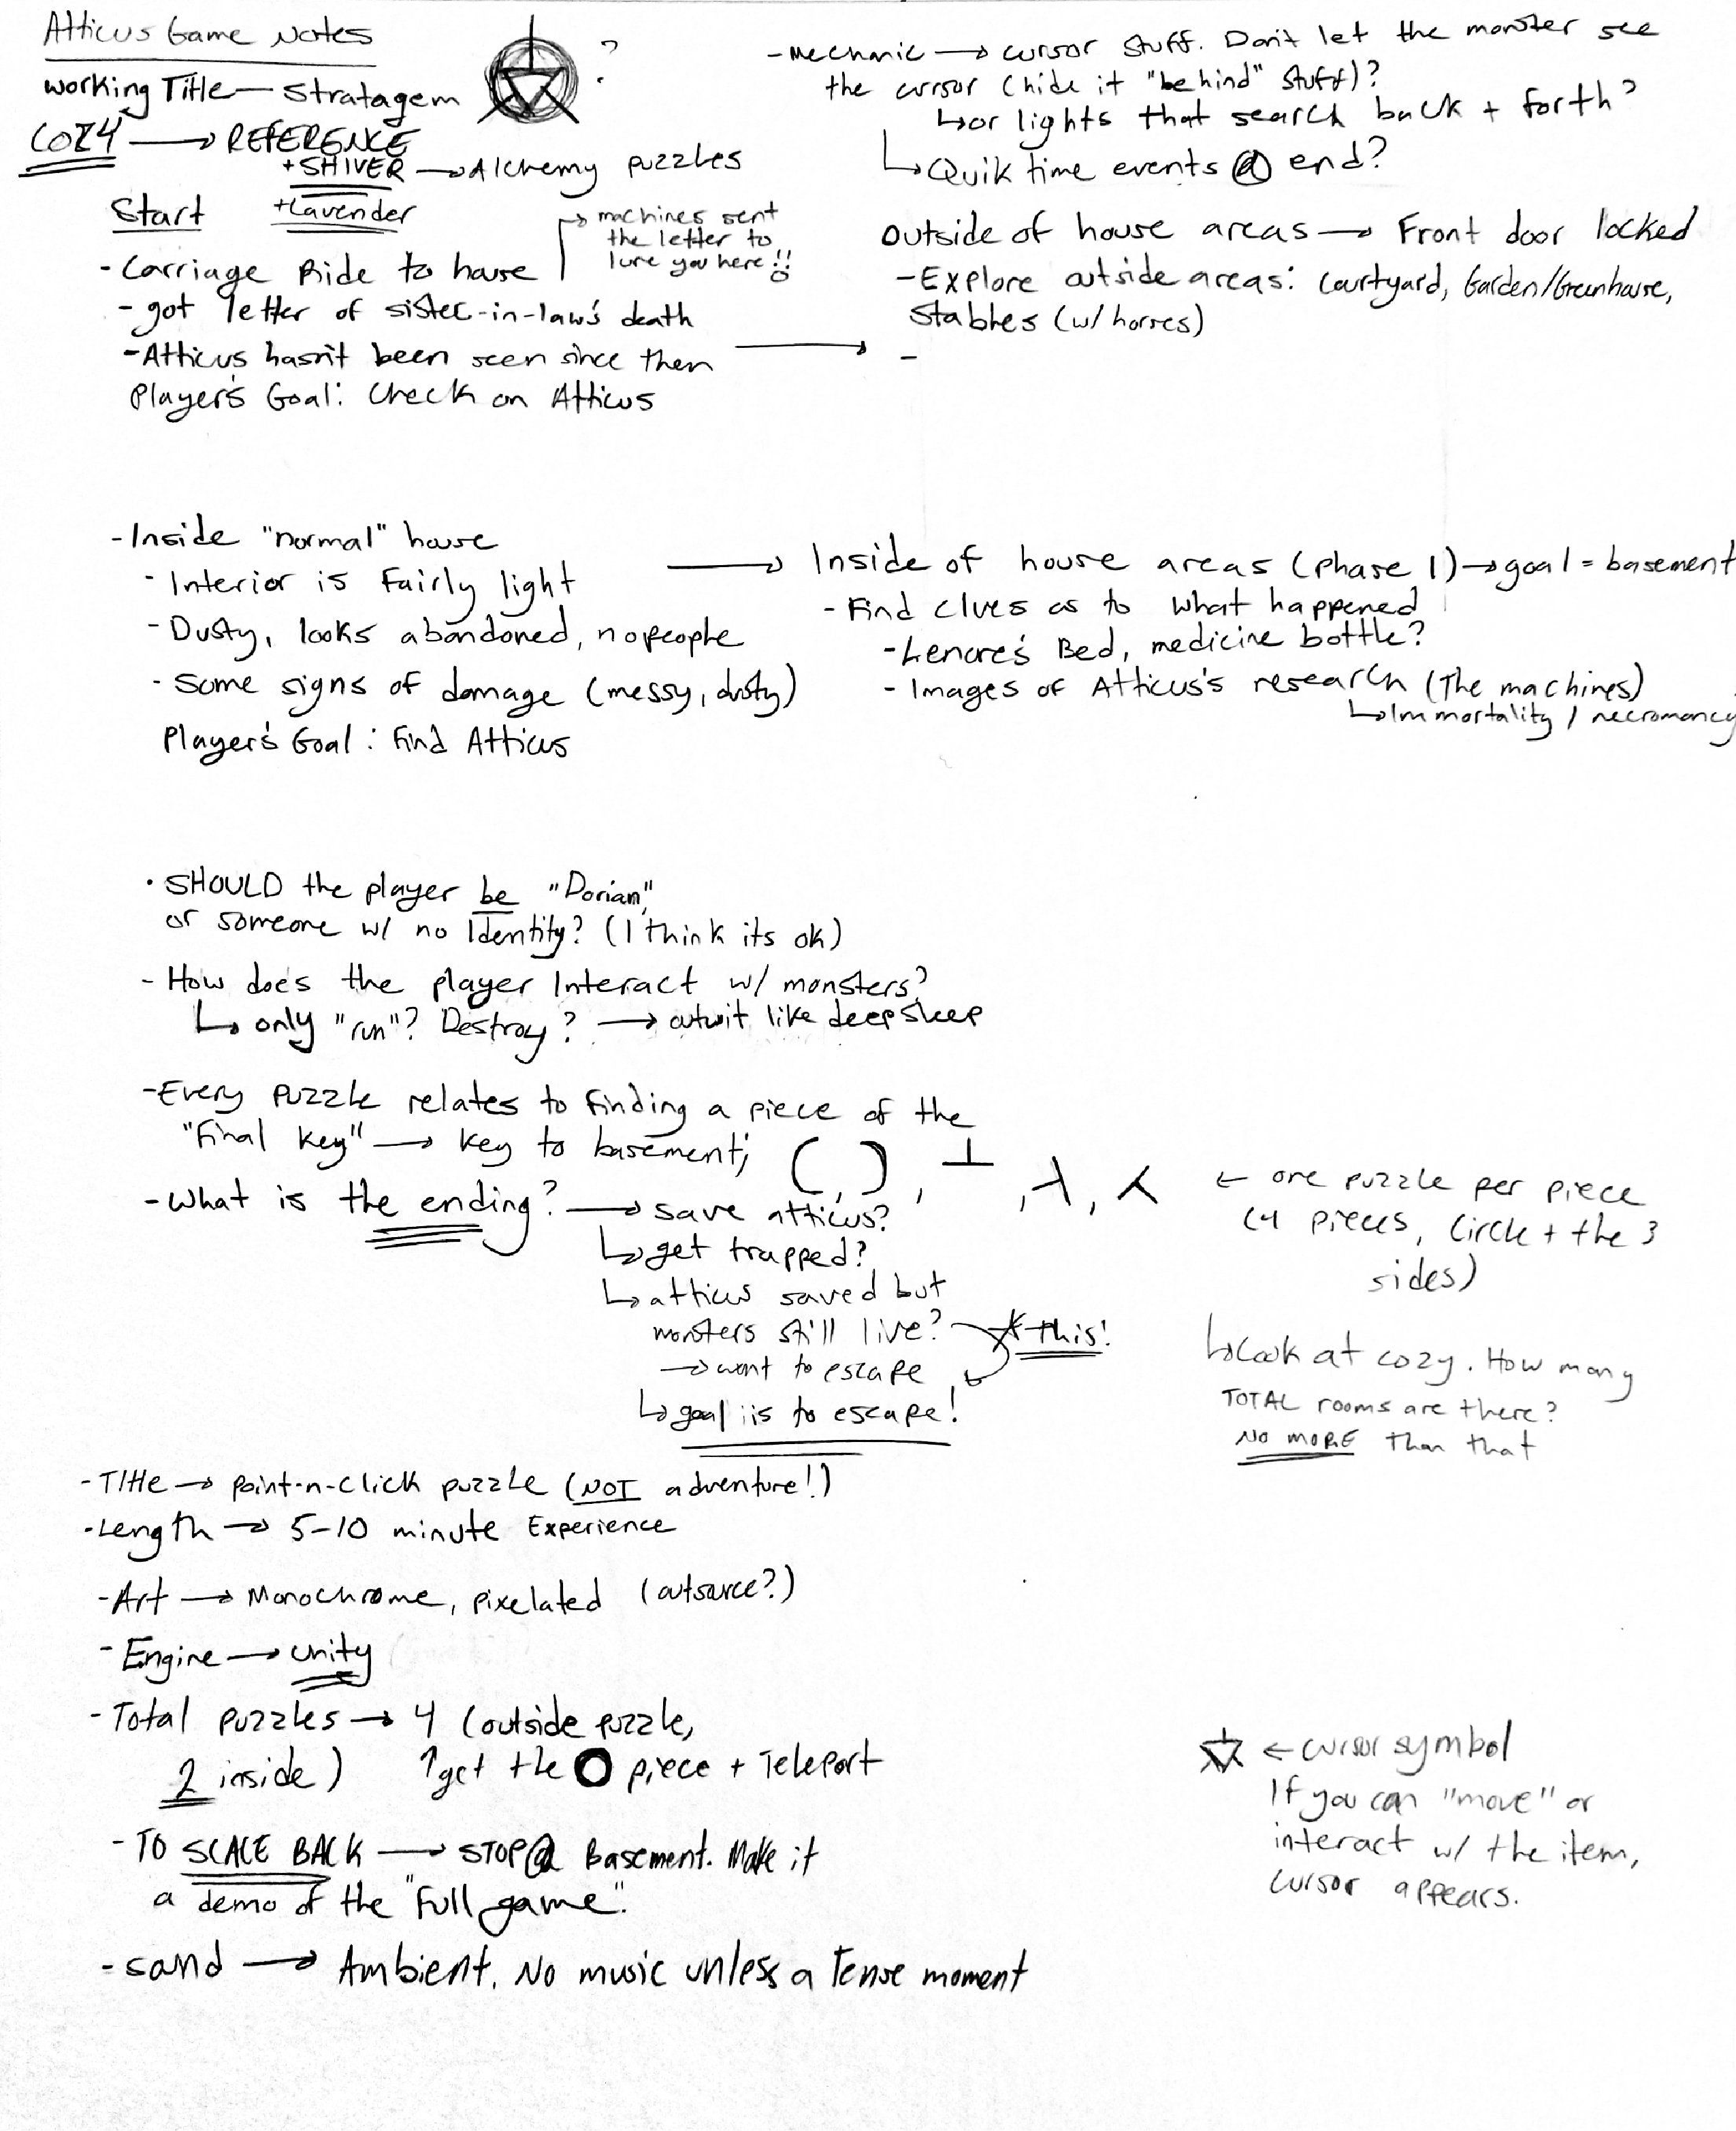 Atticus Game Notes
Working Title — Stratagem ?
COZY → REFERENCE
+ SHIVER → Alchemy puzzles
+ Lavender
Start
→ machines sent
the letter to
lure you here!!
- Carriage Ride to house
- got letter of sister-in-law's death
- Atticus hasn't been seen since then →
Player's Goal: Check on Atticus
- Mechanic → cursor stuff. Don't let the monster see
the cursor (hide it "behind" stuff)?
↳ or lights that search back + forth?
↳ Quik time events @ end?
Outside of house areas → Front door locked
- Explore outside areas: Courtyard, Garden/Greenhouse,
Stables (w/ horses)
-
- Inside "normal" house
- Interior is Fairly light
- Dusty, looks abandoned, no people
- Some signs of damage (messy, dusty)
Player's Goal: Find Atticus
→ Inside of house areas (Phase 1) → goal = basement
- Find clues as to what happened
- Lenore's Bed, medicine bottle?
- Images of Atticus's research (The machines)
↳ Immortality / necromancy
· SHOULD the player be "Dorian",
or someone w/ no Identity? (I think its ok)
- How does the player Interact w/ monsters?
↳ only "run"? Destroy? → outwit like deep sleep
- Every puzzle relates to finding a piece of the
"Final Key" → key to basement;
← one puzzle per piece
(4 pieces, Circle + the 3
sides)
↳ Look at cozy. How many
TOTAL rooms are there?
NO MORE Than that
- What is the ending? → save atticus?
↳ get trapped?
↳ atticus saved but
monsters still live? * this!
→ want to escape
↳ goal is to escape!
- Title → Point-n-Click puzzle (NOT adventure!)
- Length → 5-10 minute Experience
- Art → Monochrome, pixelated (outsource?)
- Engine → Unity
- Total puzzles → 4 (outside puzzle,
2 inside) ↑ get the O piece + Teleport
- TO SCALE BACK → STOP @ Basement. Make it
a demo of the "Full game".
- Sound → Ambient. No music unless a Tense moment
← cursor symbol
If you can "move" or
interact w/ the item,
cursor appears.